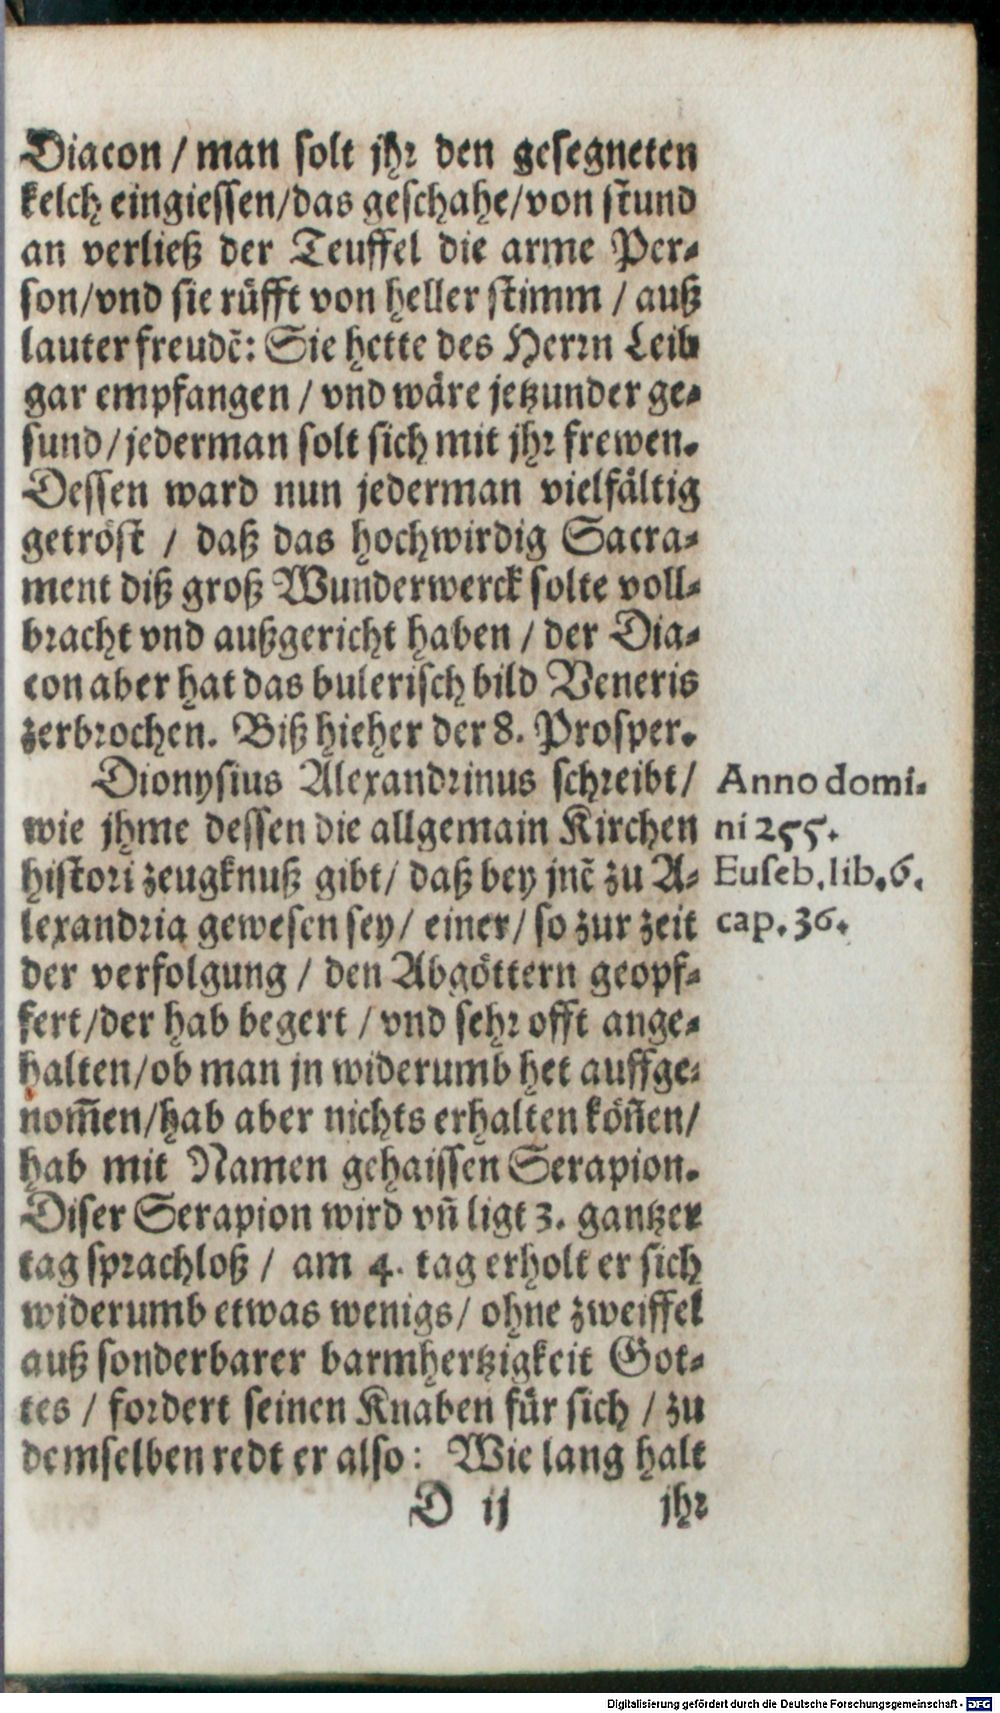 Diacon / man solt jhr den gesegneten
kelch eingiessen/das geschahe/von stund
an verließ der Teuffel die arme Per-
son/vnd sie rüfft von heller stimm / auß
lauter freudẽ: Sie hette des Herrn Leib
gar empfangen / vnd wäre jetzunder ge-
sund/jederman solt sich mit jhr frewen.
Dessen ward nun jederman vielfältig
getröst / daß das hochwirdig Sacra-
ment diß groß Wunderwerck solte voll-
bracht vnd außgericht haben / der Dia-
con aber hat das bulerisch bild Veneris
zerbrochen. Biß hieher der 8. Prosper.
Dionysius Alexandrinus schreibt/
wie jhme dessen die allgemain Kirchen
histori zeugknuß gibt/ daß bey jnẽ zu A-
lexandria gewesen sey/ einer/ so zur zeit
der verfolgung / den Abgöttern geopf-
fert/der hab begert / vnd sehr offt ange-
halten/ob man jn widerumb het auffge-
nom̃en/hab aber nichts erhalten köñen/
hab mit Namen gehaissen Serapion.
Diser Serapion wird vñ ligt 3. gantzer
tag sprachloß / am 4. tag erholt er sich
widerumb etwas wenigs/ ohne zweiffel
auß sonderbarer barmhertzigkeit Got-
tes / fordert seinen Knaben für sich / zu
demselben redt er also: Wie lang halt
D ij jhr
Anno domi-
ni 255.
Euseb. lib. 6.
cap. 36.
Digitalisierung gefördert durch die Deutsche Forschungsgemeinschaft - DFG